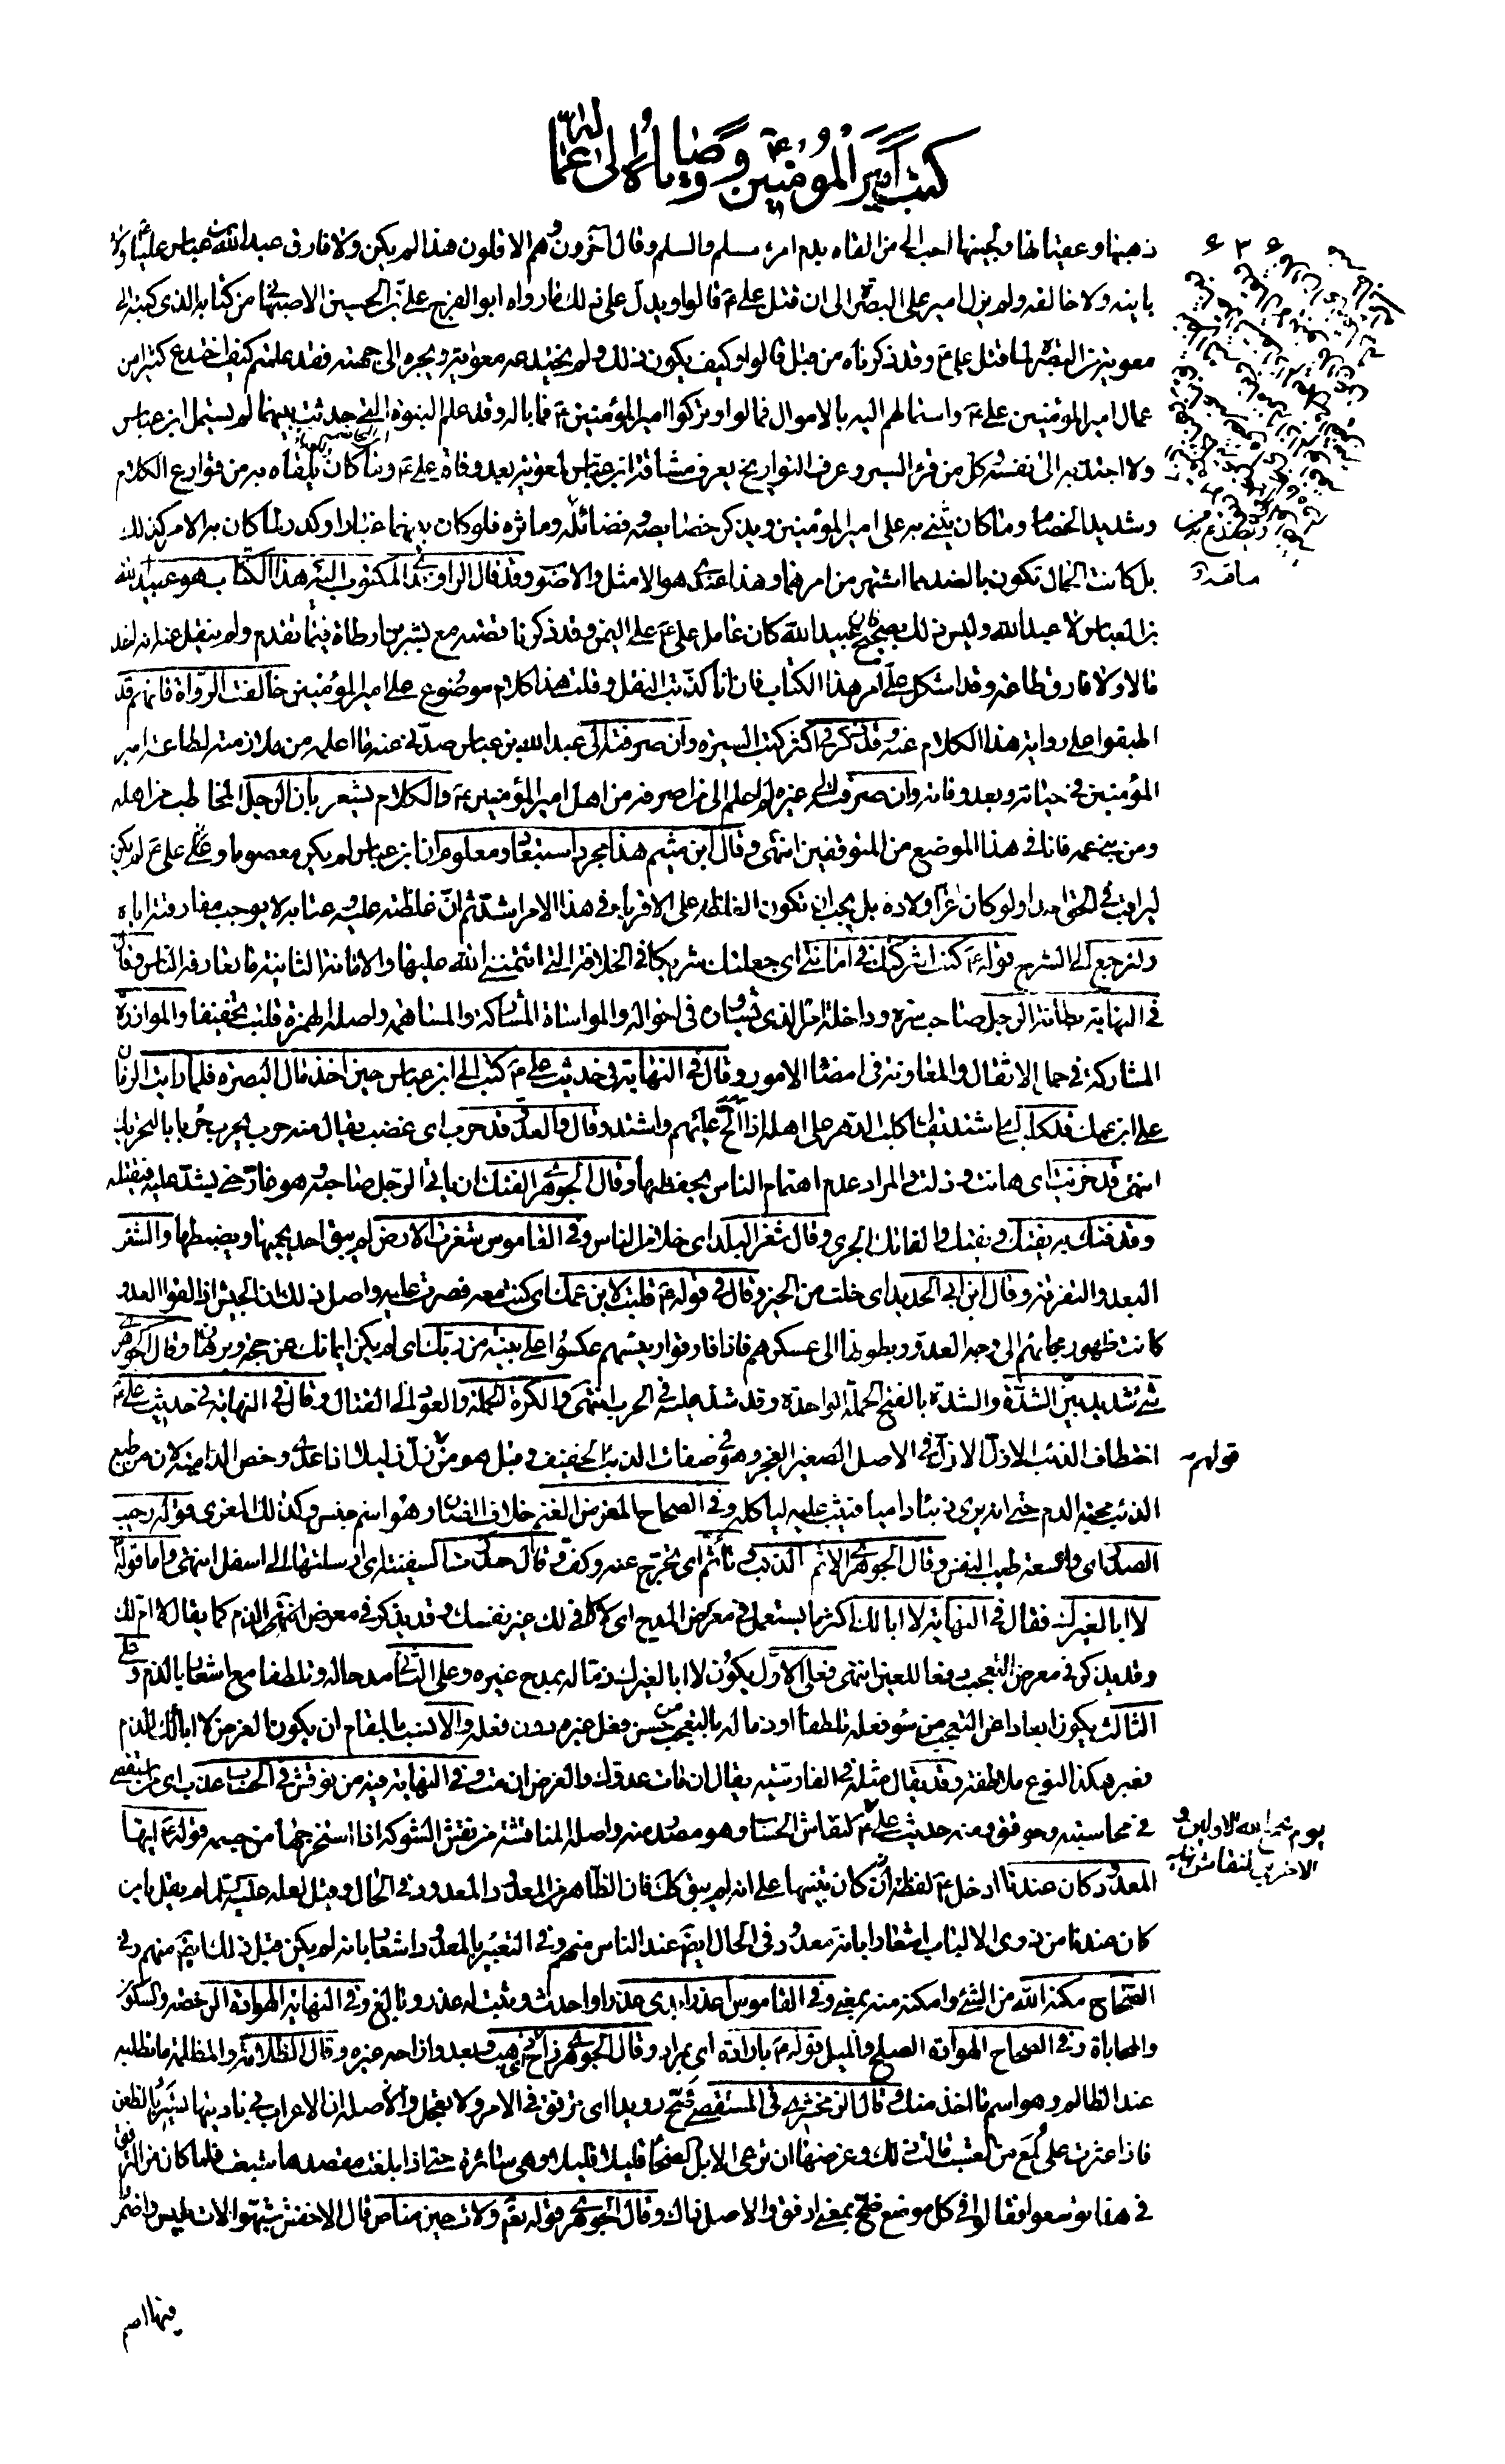 كتب أمير المؤمنين ع ووصاياه إلى عماله
۶۳۶
ذهبها وعقيانها ولجينها احب الى من القاه بدم امرء مسلم والسلم وقال آخرون وهم الاقلون هذا لم يكن ولا فارق عبد الله بن عباس عليا ع ولا
باينه ولا خالفه ولم يزل اميرا على البصرة الى ان قتل على ع قالوا ويدل على ذلك ما رواه ابو الفرج على بن الحسين الاصبهانى من كتابه الذى كتبه الى
معوية من البصرة لما قتل على ع وقد ذكرناه من قبل قالوا وكيف يكون ذلك ولم يختدعه معوية ويجره الى جهته فقد علمتم كيف اختدع كثيرا من
عمال امير المؤمنين على ع واستمالهم اليه بالاموال فمالوا وتركوا امير المؤمنين ع فما باله وقد علم النبوة التى حدثت بينهما لم يستمل ابن عباس
ولا اجتذبه الى نفسه وكل من قرء السير وعرف التواريخ يعرف مشاقة ابن عباس لمعوية بعد وفاة على ع وما كان يلقاه به من قوارع الكلام
وشديد الخصام وما كان يثنى به على امير المؤمنين ويذكر خصايصه وفضائله وماثره فلو كان بينهما غبار او كدر لما كان الامر كذلك
بل كانت الحال تكون بالضد مما اشتهر من امرهما وهذا عندى هو الامثل والاصوب وقد قال الراوندى المكتوب اليه هذا الكتاب هو عبيد الله
بن العباس لا عبد الله وليس ذلك بصحيح فان عبيد الله كان عامل على ع على اليمن وقد ذكرنا قصته مع بسر بن ارطاة فيما تقدم ولم ينقل عنه انه اخذ
مالا ولا فارق طاعة وقد اشكل على امر هذا الكتاب فان انا كذبت النقل وقلت هذا كلام موضوع على امير المؤمنين خالفت الرواة فانهم قد
اطبقوا على رواية هذا الكلام عنه وقد ذكر فى اكثر كتب السيرة وان صرفته الى عبد الله بن عباس صدنى عنه ما اعلمه من ملازمته لطاعة امير
المؤمنين فى حياته وبعد وفاته وان صرفته الى غيره لم اعلم الى من اصرفه من اهل امير المؤمنين ع والكلام يشعر بان الرجل المخاطب من اهله
ومن بنى عمه فانا فى هذا الموضع من المتوقفين انتهى وقال ابن ميثم هذا مجرد استبعاد ومعلوم ان ابن عباس لم يكن معصوما وعلى ع لم يكن
ليراقب فى الحق احدا ولو كان اعز اولاده بل يجب ان تكون الغلظة على الاقرباء فى هذا الامر اشد ثم ان غلظته عليه وعتابه لا يوجب مفارقته اياه
ولنرجع الى الشرح قوله ع كنت اشركتك فى امانتى اى جعلتك شريكا فى الخلافة التى ائتمننى الله عليها والامانة الثانية ما تعارفه الناس وقال
فى النهاية بطانة الرجل صاحب سره وداخلة امره الذى يشاوره فى احواله والمواساة المشاركة والمساهمة واصله الهمزة قلبت تخفيفا والموازرة
المشاركة فى حمل الاثقال والمعاونة فى امضاء الامور وقال فى النهاية فى حديث على ع كتب الى ابن عباس حين اخذ مال البصرة فلما رايت الزمان
على ابن عمك قد كلب اى اشتد يقال كلب الدهر على اهله اذا الح عليهم واشتد وقال والعدو قد حرب اى غضب يقال منه حرب يحرب حربا بالتحريك
انتهى قد خزيت اى هانت وذلت والمراد عدم اهتمام الناس بحفظها وقال الجوهرى الفتك ان ياتى الرجل صاحبه وهو غار حتى يشد عليه فيقتله
وقد فتك به يفتك ويفتك والفاتك الجرى وقال شغر البلد اى خلا من الناس وفى القاموس شغرت الارض لم يبق احد يحميها ويضبطها والشغر
البعد والتفرقة وقال ابن ابى الحديد اى خلت من الخير وقال فى قوله ع قلبت لابن عمك اى كنت معه فصرت عليه واصل ذلك ان الجيش اذا لقوا العدو
كانت ظهور مجانهم الى وجه العدو وبطونها الى عسكرهم فاذا فارقوا رئيسهم عكسوا على بينة من ربك اى لم يكن ايمانك عن حجة وبرهان وقال الجوهرى
شئ شديد بين الشدة والشدة بالفتح الحملة الواحدة وقد شد عليه فى الحرب انتهى والكرة الحملة والعود الى القتال وقال فى النهاية فى حديث على ع
قوله ع
اختطاف الذئب الازل الازل فى الاصل الصغير العجز وهو فى صفات الذئب الخفيف وقيل هو من زل زليلا اذا عدا وخص الدامية لان من طبع
الذئب محبة الدم حتى انه يرى ذئبا داميا فيثب عليه لياكله وفى الصحاح المعز من الغنم خلاف الضان وهو اسم جنس وكذلك المعزى قوله رحيب
الصدر اى واسعة طيب النفس وقال الجوهرى الاثم الذنب وتاثم اى تحرج عنه وكف وقال حدرت السفينة اى ارسلتها الى اسفل انتهى واما قوله ع
لا ابا لغيرك فقال فى النهاية لا ابا لك اكثر ما يستعمل فى معرض المدح اى لا كافى لك غير نفسك وقد يذكر فى معرض الذم كما يقال لا ام لك
وقد يذكر فى معرض التعجب ودفعا للعين انتهى فعلى الاول يكون لا ابا لغيرك ذما له بمدح غيره وعلى الثانى مدحا له وتلطفا مع اشعار بالذم وعلى
الثالث يكون ابعادا عن التعجب من سوء فعله تلطفا او ذما له بالتعجب من حسن فعل غيره دون فعله والانسب بالمقام ان يكون الغرض لا ابا لك للذم
فعبر هكذا لنوع ملاطفة وقد يقال مثله فى الفارسية يقال ان مات عدوك والغرض ان مت وفى النهاية فيه من نوقش فى الحساب عذب اى من استقصى
فى محاسبته وحوقق ومنه حديث على ع لنقاش الحساب وهو مصدر منه واصل المناقشة من نقش الشوكة اذا استخرجها من جسمه قوله ع ايها
يوم يجمع الله الاولين و
الاخرين لنقاش
المعدود كان عندنا ادخل ع لفظة كان تنبيها على انه لم يبق كذلك فان الظاهر من المعدود المعدود فى الحال وقيل لعله ع لم يقل يا من
كان عندنا من ذوى الالباب اشعارا بانه معدود فى الحال ايضا عند الناس منهم وفى التعبير بالمعدود اشعار بانه لم يكن قبل ذلك ايضا منهم وفى
الصحاح مكنه الله من الشئ وامكنه منه بمعنى وفى القاموس اعذر ابدى عذرا واحدث وثبت له عذر وبالغ وفى النهاية الهوادة الرخصة والسكون
والمحاباة وفى الصحاح الهوادة الصلح والميل قوله ع بارادة اى بمراد وقال الجوهرى زاح اى ذهب وبعد وازاحه غيره وقال الظلامة والمظلمة ما تطلبه
عند الظالم وهو اسم ما اخذ منك وقال الزمخشرى فى المستقصى ضح رويدا اى ترفق فى الامر ولا تعجل واصله ان الاعراب فى باديتها تسير بالظعن
فاذا عثرت على لمع من العشب قالت ذلك وغرضها ان ترعى الابل الضحاء قليلا قليلا وهى سائرة حتى اذا بلغت مقصدها شبعت فلما كان من الترفق
فى هذا توسعوا فقالوا فى كل موضع ضح بمعنى ارفق والاصل ذاك وقال الجوهرى قوله تعالى ولات حين مناص قال الاخفش شبهوا لات بليس واضمروا
فيها اسم